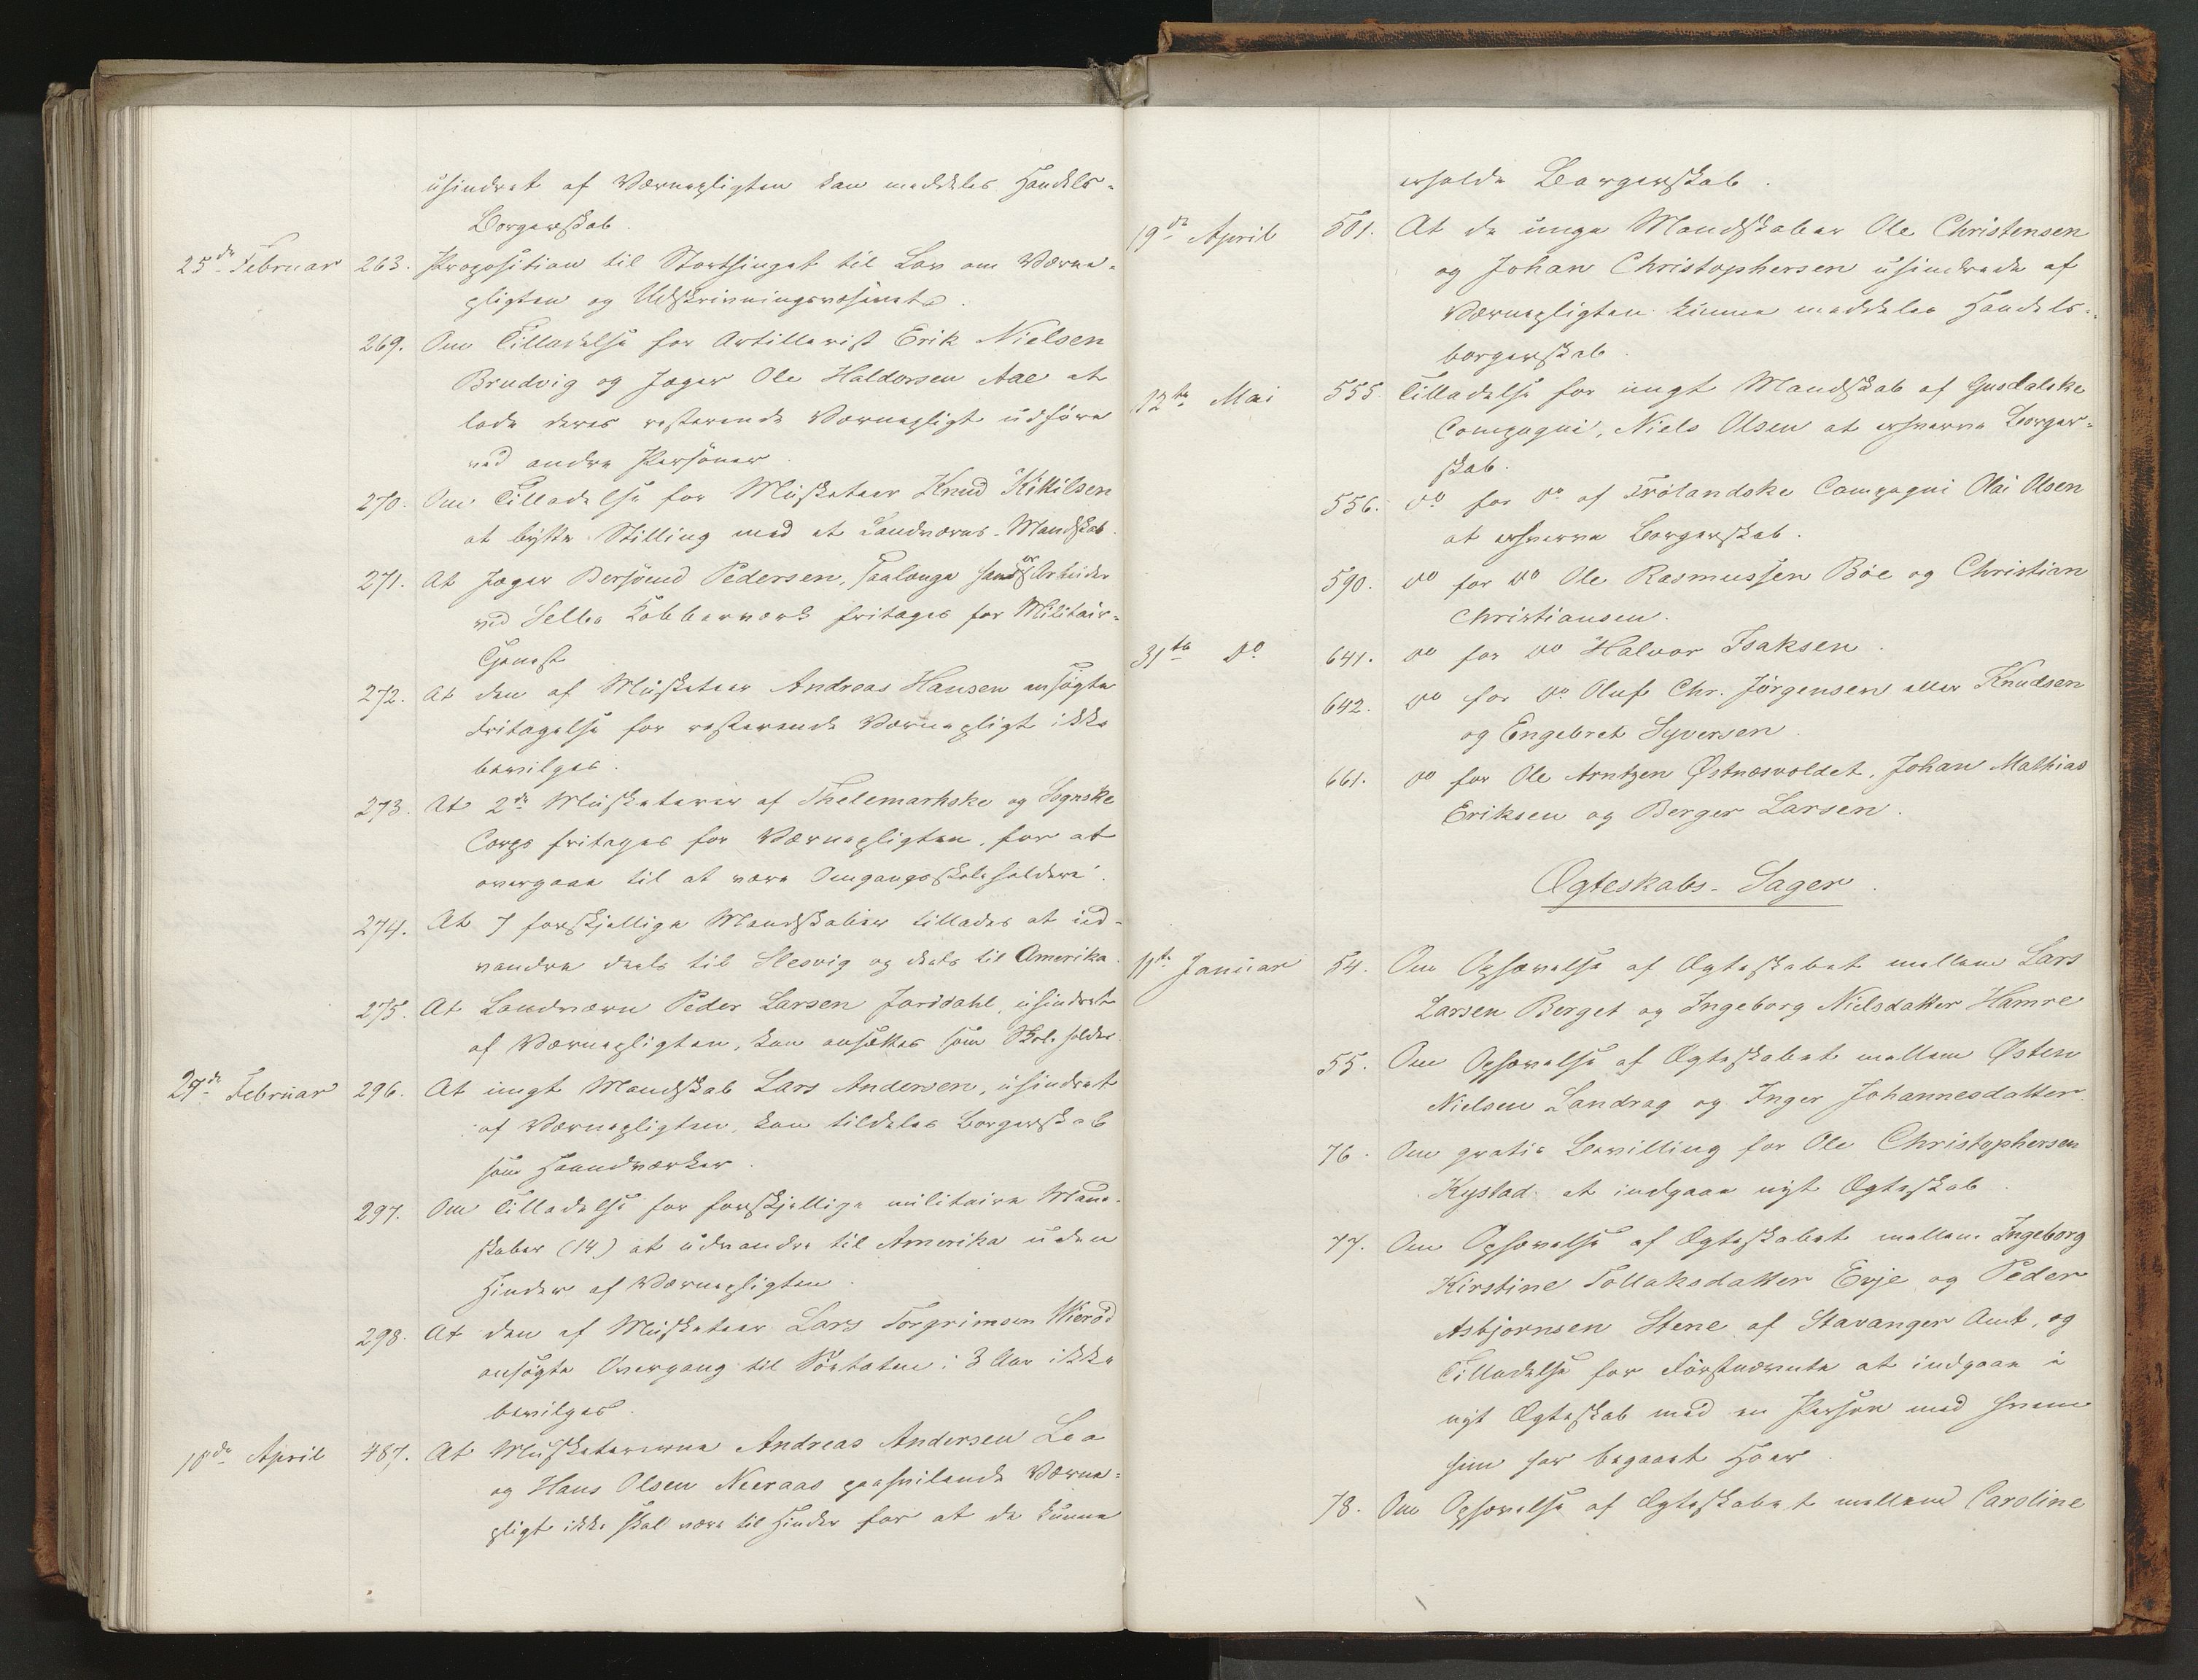 uhindret af Værnepligten kan meddeles Handels-
Borgerskab.
25de Februar 263. Proposition til Storthinget til Lov om Værne-
pligten og Udskrivningsvæsenet.
269. Om Tilladelse for Artillerist Erik Nielsen
Brudvig og Jæger Ole Haldorsen Aae at
lade deres resterende Værnepligt udføre
ved andre Personer
270. Om Tilladelse for Musketeer Knud Kittilsen
at bytte Stilling med et Landværns-Mandskab.
271. At Jæger Bersvend Pedersen, saalænge han er Arbeider
ved Selbo Kobberværk fritages for Militair-
Tjeneste
272. At den af Musketeer Andreas Hansen ansøgte
Fritagelse for resterende Værnepligt ikke
bevilges.
273. At 2de Musketerer af Thelemarkske og Sognske
Corps fritages for Værnepligten, for at
overgaae til at være Omgangsskoleholdere.
274. At 7 forskjellige Mandskaber tillades at ud-
vandre deels til Slesvig og deels til Amerika.
275. At Landværn Peder Larsen Jordahl, uhindret
af Værnepligten, kan ansættes som Skoleholder.
27de Februar 296. At ungt Mandskab Lars Andersen, uhindret
af Værnepligten, kan tildeles Borgerskab
som Haandværker.
297. Om Tilladelse for forskjellige militaire Mand-
skaber (14) at udvandre til Amerika uden
Hinder af Værnepligten.
298. At den af Musketeer Lars Torgrimsen Wierød
ansøgte Overgang til Søetaten i 3 Aar ikke
bevilges.
18de April 487. At Musketererne Andreas Andersen Lea
og Hans Olsen Neeraas paahvilende Værne-
pligt ikke skal være til Hinder for at de kunne
erholde Borgerskab.
19de April 501. At de unge Mandskaber Ole Christensen
og Johan Christophersen uhindrede af
Værnepligten kunne meddeles Handels-
borgerskab.
12te Mai 555 Tilladelse for ungt Mandskab af Gusdalske
Compagni, Niels Olsen at erhverve Borger-
skab.
556. do for do af Frolandske Compagni Olai Olsen
at erhverve Borgerskab.
590. do for do Ole Rasmussen Bøe og Christian
Christiansen.
31te do 641. do for do Halvor Isaksen.
642. do for do Oluf Chr. Jørgensen eller Knudsen
og Engebret Syversen.
661. do for Ole Arntzen Østnæsvoldet, Johan Mathias
Eriksen og Berger Larsen.
Ægteskabs-Sager.
11te Januar 54. Om Ophævelse af Ægteskabet mellem Lars
Larsen Berget og Ingeborg Nielsdatter Hamre
55. Om Ophævelse af Ægteskabet mellem Østen
Nielsen Landrag og Inger Johannesdatter.
76. Om gratis Bevilling for Ole Christophersen
Kystad at indgaae nyt Ægteskab.
77. Om Ophævelse af Ægteskabet mellem Ingeborg
Kirstine Tollaksdatter Evje og Peder
Asbjørnsen Stene af Stavanger Amt, og
Tilladelse for Førstnævnte at indgaae i
nyt Ægteskab med en Person med hvem
hun har begaaet Hoer.
78. Om Ophævelse af Ægteskabet mellem Caroline